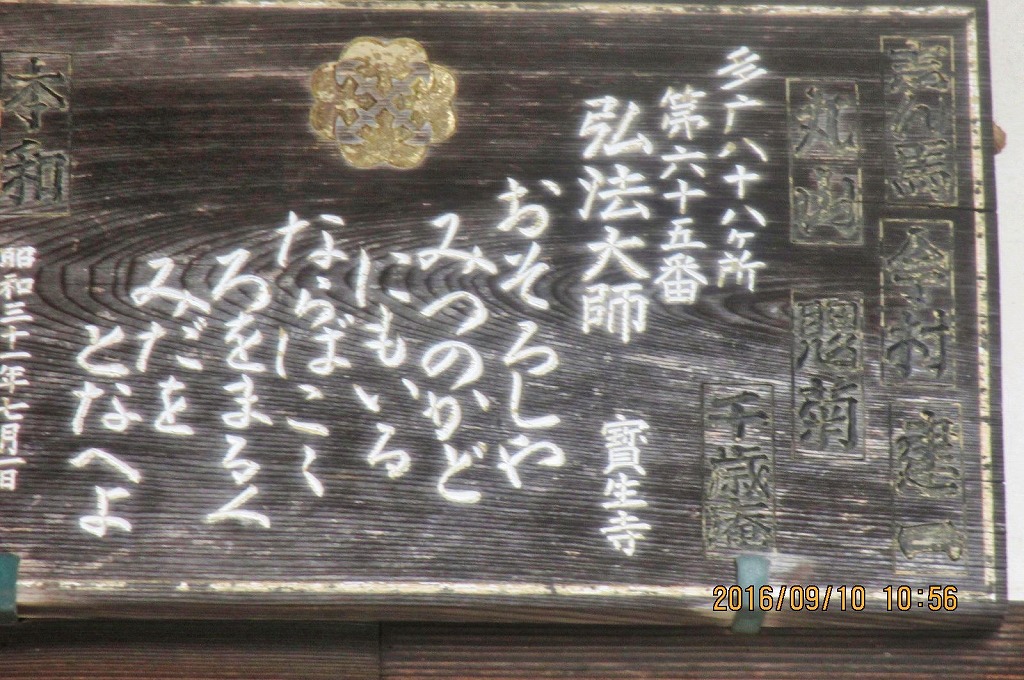 今村
丸山
千歳菴
多广八十八ヶ所
第六十五番
弘法大師 寶生寺
おそろしや
みつのかど
にもいる
ならばこゝ
ろをまるく
みだを
となへよ
昭和三十一年七月一日
本和
2016/09/10 10:56